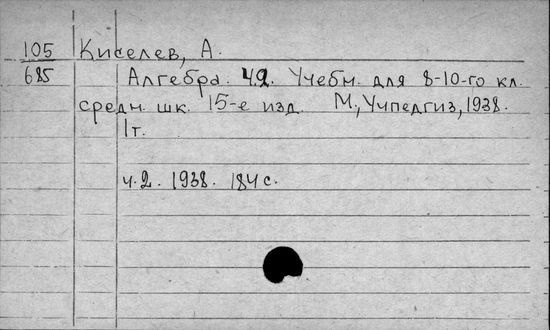 105 Киселев, А.
685 Алгебра. Ч.2. Учебн. для 8-10-го кл.
средн. шк. 15-е изд. М., Учпедгиз, 1938.
1т.
ч.2. 1938. 184 с.